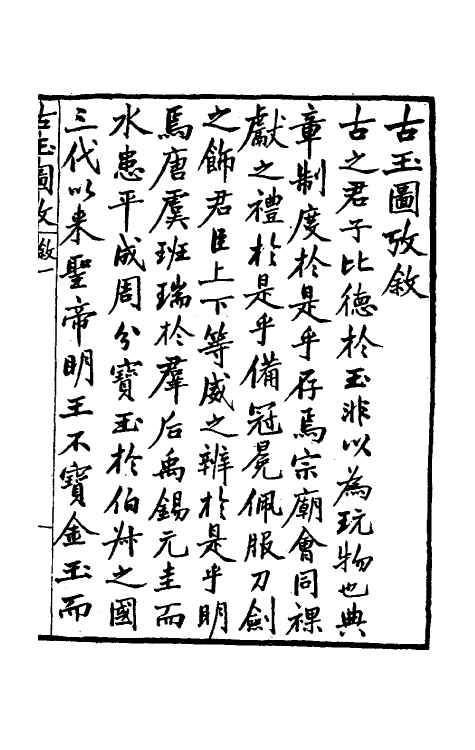 古玉圖攷敘
古之君子比德於玉非以為玩物也典
章制度於是乎存焉宗廟會同祼
獻之禮於是乎備冠冕佩服刀劍
之飾君臣上下等威之辨於是乎明
焉唐虞班瑞於羣后禹錫元圭而
水患平成周分寶玉於伯叔之國
三代以来聖帝明王不寶金玉而
古玉圖攷 敘 一